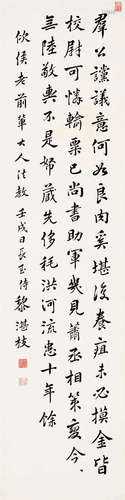 羣公讜議意何如良肉奚堪復養疽未必摸金皆
校尉可憐輸粟已尚書助軍幾見蕭丞相策變今
無陸敬輿不是帑藏先侈耗洪河流患十年餘
欣侯老前輩大人法教 壬戌日長至侍黎湛枝